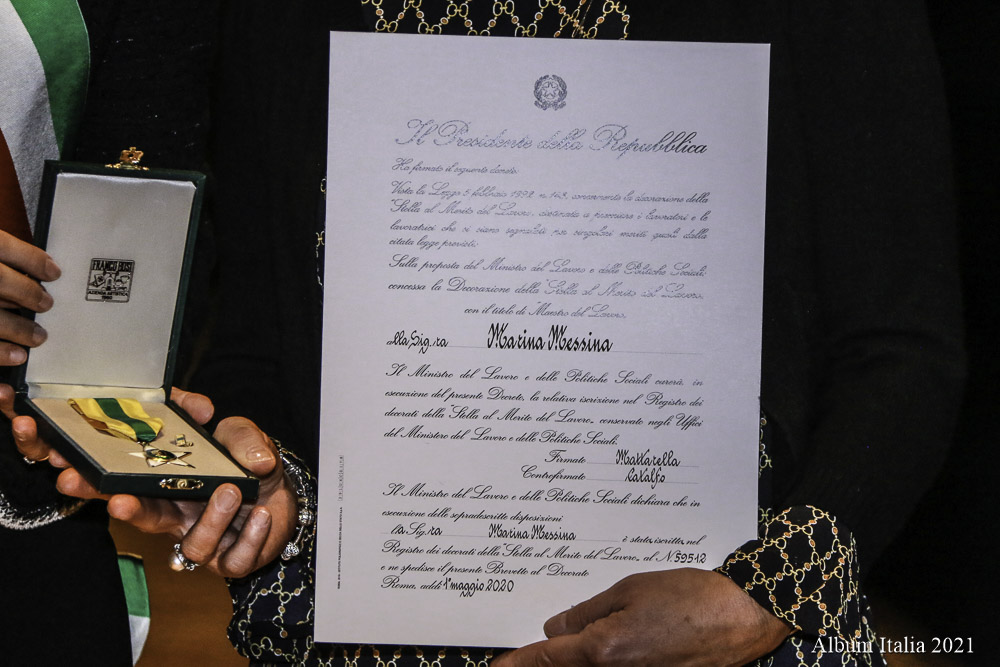 Il Presidente della Repubblica
Ha firmato il seguente decreto
Vista la Legge 5 febbraio 1992 n. 143, concernente la decorazione della
"Stella al Merito del Lavoro, destinata a premiare i lavoratori e le
lavoratrici che si siano segnalati per singolari meriti quali dalla
citata legge previsti;
Sulla proposta del Ministro del Lavoro e delle Politiche Sociali;
concessa la Decorazione della "Stella al Merito del Lavoro,
con il titolo di "Maestro del Lavoro,
alla Sig.ra Marina Messina
Il Ministro del Lavoro e delle Politiche Sociali curerà, in
esecuzione del presente Decreto, la relativa iscrizione nel Registro dei
decorati della "Stella al Merito del Lavoro, conservato negli Uffici
del Ministero del Lavoro e delle Politiche Sociali.
Firmato Mattarella
Controfirmato Catalfo
Il Ministro del Lavoro e delle Politiche Sociali dichiara che in
esecuzione delle sopradescritte disposizioni
la Sig.ra Marina Messina è stata iscritta nel
Registro dei decorati della "Stella al Merito del Lavoro, al N. 59512
e ne spedisce il presente Brevetto al Decorato
Roma, addì 1° maggio 2020
Album Italia 2021